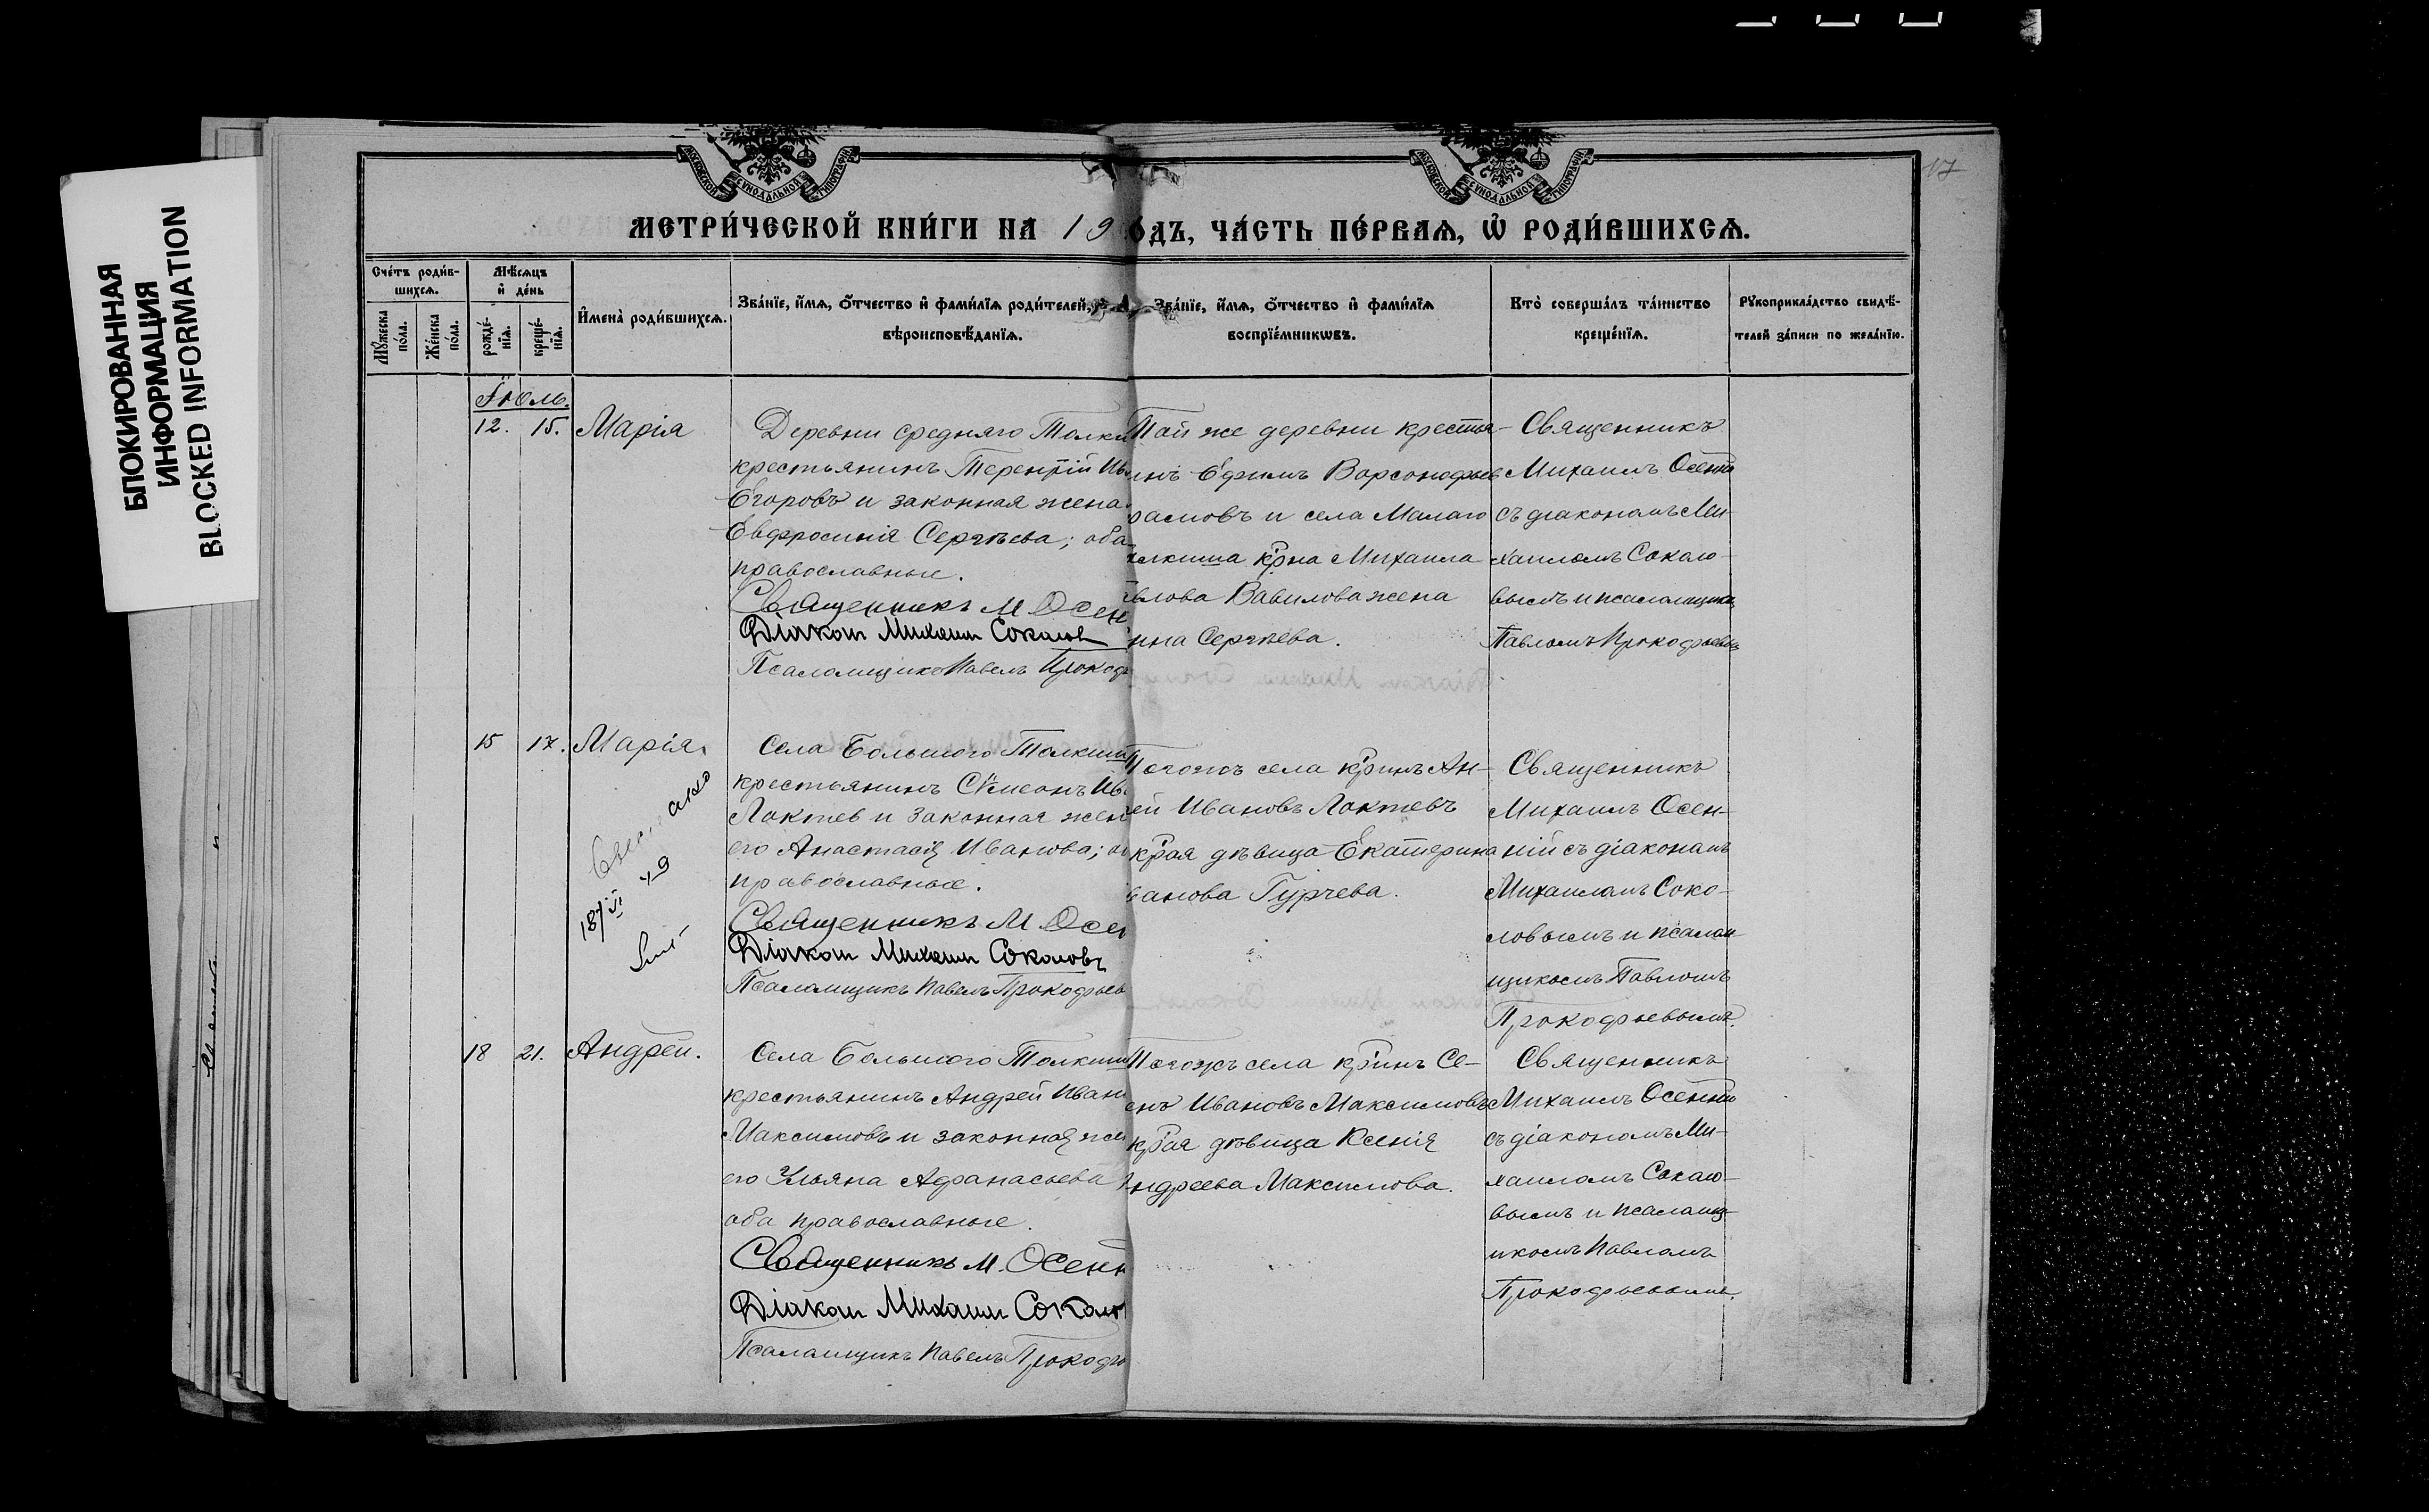 БЛОКИРОВАННАЯ
ИНФОРМАЦИЯ
BLOCKED INFORMATION
МОСКОВСКОЙ СѴНОДАЛЬНОЙ ТИПОГРАФІИ
МОСКОВСКОЙ СѴНОДАЛЬНОЙ ТИПОГРАФІИ
17
МЕТРИ́ЧЕСКОЙ КНИ́ГИ НА 19 ОДЪ, ЧА́СТЬ ПЕ́РВАѦ, Ѽ РОДИ́ВШИХСѦ.
Сче́тъ роди́в-
шихсѧ.
Мꙋ́жеска по́ла.
Же́нска по́ла.
Мѣ́сѧцъ
и҆ де́нь
рожде́-
нїѧ.
креще́-
нїѧ.
И҆мена̀ роди́вшихсѧ.
Зва́нїе, и҆́мѧ, ѻ҆́тчество и҆ фами́лїѧ роди́телей,
вѣроисповѣ́данїѧ.
Зва́нїе, и҆́мѧ, ѻ҆́тчество и҆ фами́лїѧ
воспрїе́мникѡвъ.
Кто̀ соверша́лъ та́инство
креще́нїѧ.
Рꙋкоприкла́дство свидѣ́-
телей за́писи по жела́нїю.
Іюль.
12. 15. Марія
Деревни средняго Толки
крестьянинъ Терентій Ив
Егоровъ и законная жена
Евфросинія Сергѣева; оба
православные.
Священникъ М Осен
Діакон Михаил Соколов
Псаломщикъ Павелъ Прокоф
Той же деревни крестья-
инъ Ефимъ Варсонофьев
рамовъ и села Малаго
лкиша кр̃на Михаила
влова Вавилова жена
ина Сергѣева.
Священникъ
Михаилъ Осенній
съ діакономъ Ми-
хаиломъ Соколо-
вымъ и псаломщико
Павломъ Прокофьевым
15 17. Марія.
187
Села Большого Толкиш
крестьянинъ Сѷмеонъ Ив
Локтев и законная жен
его Анастасія Иванова; об
православные.
Священникъ М. Осен
Діакон Михаил Соколовъ
Псаломщикъ Павелъ Прокофьев
Тогожъ села кр̃инъ Ан-
ей Ивановъ Локтевъ
кр̃ая дѣвица Екатерина
ванова Гурчева.
Священникъ
Михаилъ Осен-
ній съ діакономъ
Михаиломъ Соко-
ловымъ и псалом
щикомъ Павломъ
Прокофьевымъ.
18 21. Андрей.
Села Большого Толкиш
крестьянинъ Андрей Иван
Максимовъ и законная жен
его Ульяна Афанасьева
оба православные.
Священникъ М. Осенн
Діакон Михаил Соколов
Псаломщикъ Павелъ Прокофь
Тогожъ села кр̃инъ Се-
енъ Ивановъ Максимовъ
кр̃ая дѣвица Ксенія
Андреева Максимова.
Священникъ
Михаилъ Осенній
съ діакономъ Ми-
хаиломъ Соколо-
вымъ и псаломщ-
икомъ Павломъ
Прокофьевымъ.